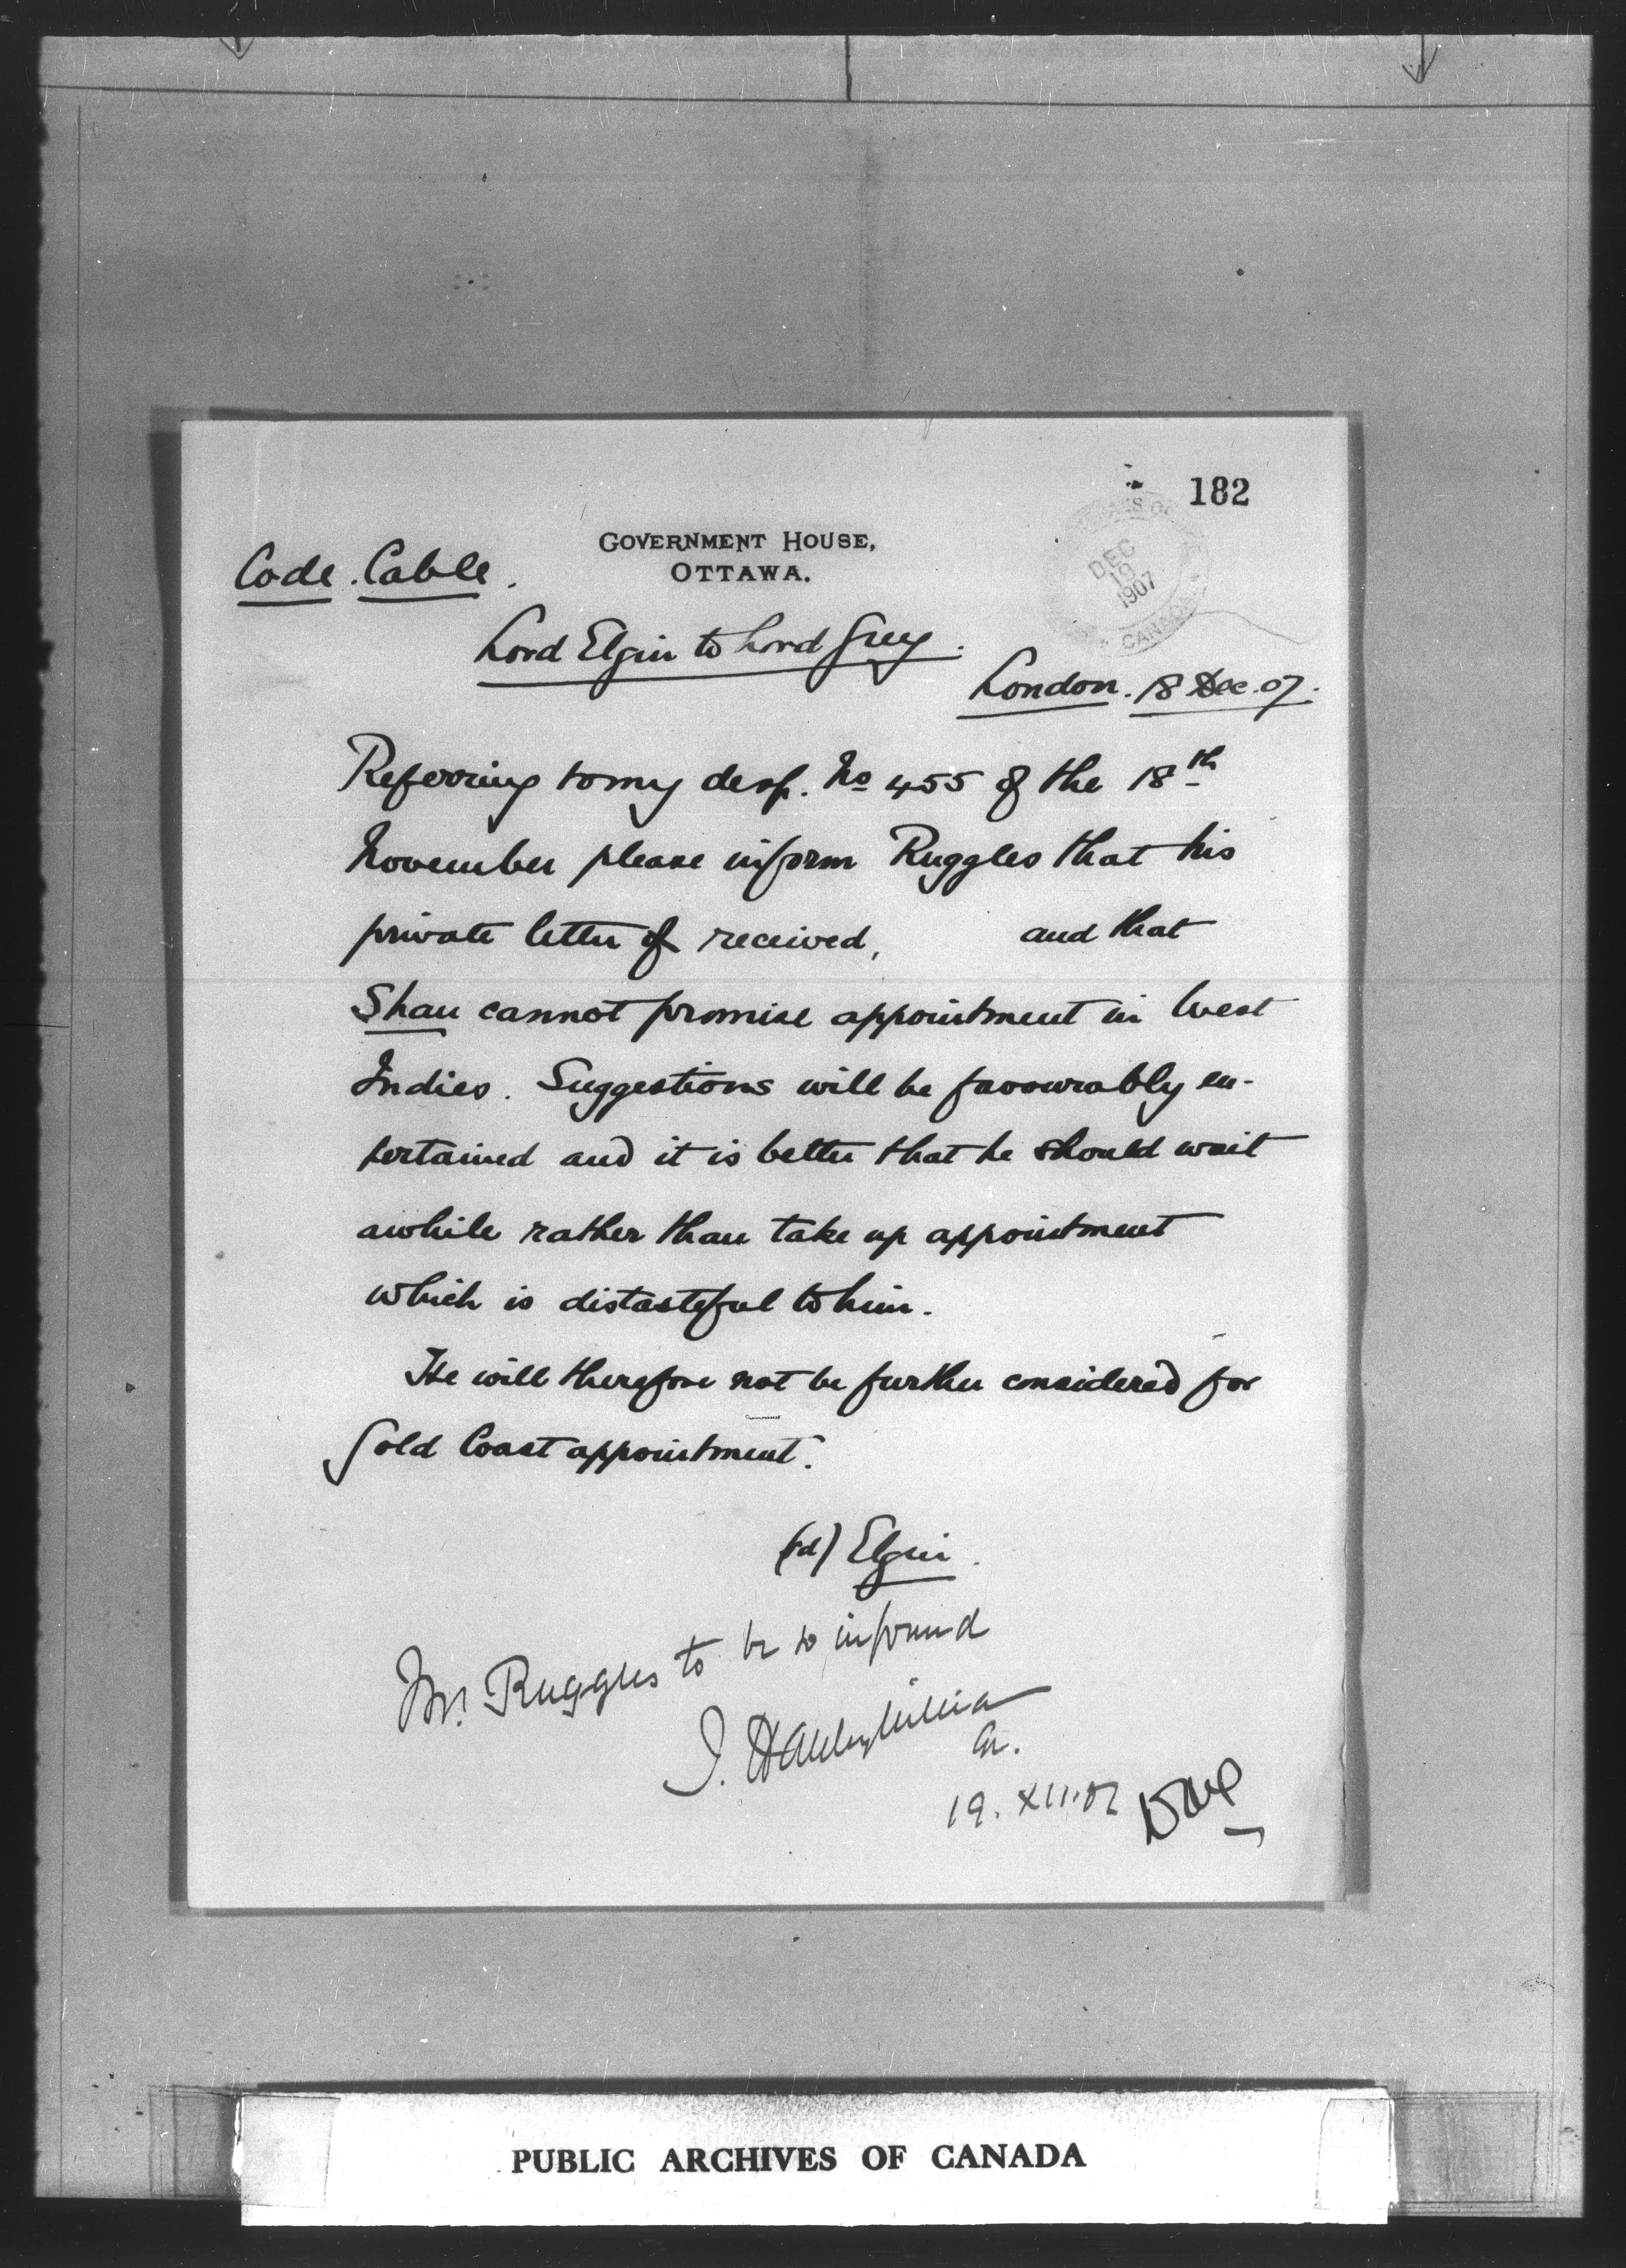 182
GOVERNMENT HOUSE,
OTTAWA.
DEC
19
1907
CANADA
Code. Cable.
Lord Elgin to Lord Grey.
London. 18 Dec. 07.
Referring to my desp. No 455 of the 18th
November please inform Ruggles that his
private letter of received, and that
Shau cannot promise appointment in West
Indies. Suggestions will be favourably en-
tertained and it is better that he should wait
awhile rather than take up appointment
which is distasteful to him.
He will therefore not be further considered for
Gold Coast appointment.
(sd) Elgin.
Mr. Ruggles to be so informed
J. Hanbury Williams
19. XII. 07
PUBLIC ARCHIVES OF CANADA